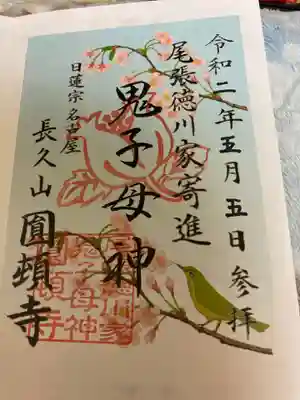 令和二年五月五日参拝
尾張徳川家寄進
鬼子母神
日蓮宗名古屋
長久山圓頓寺